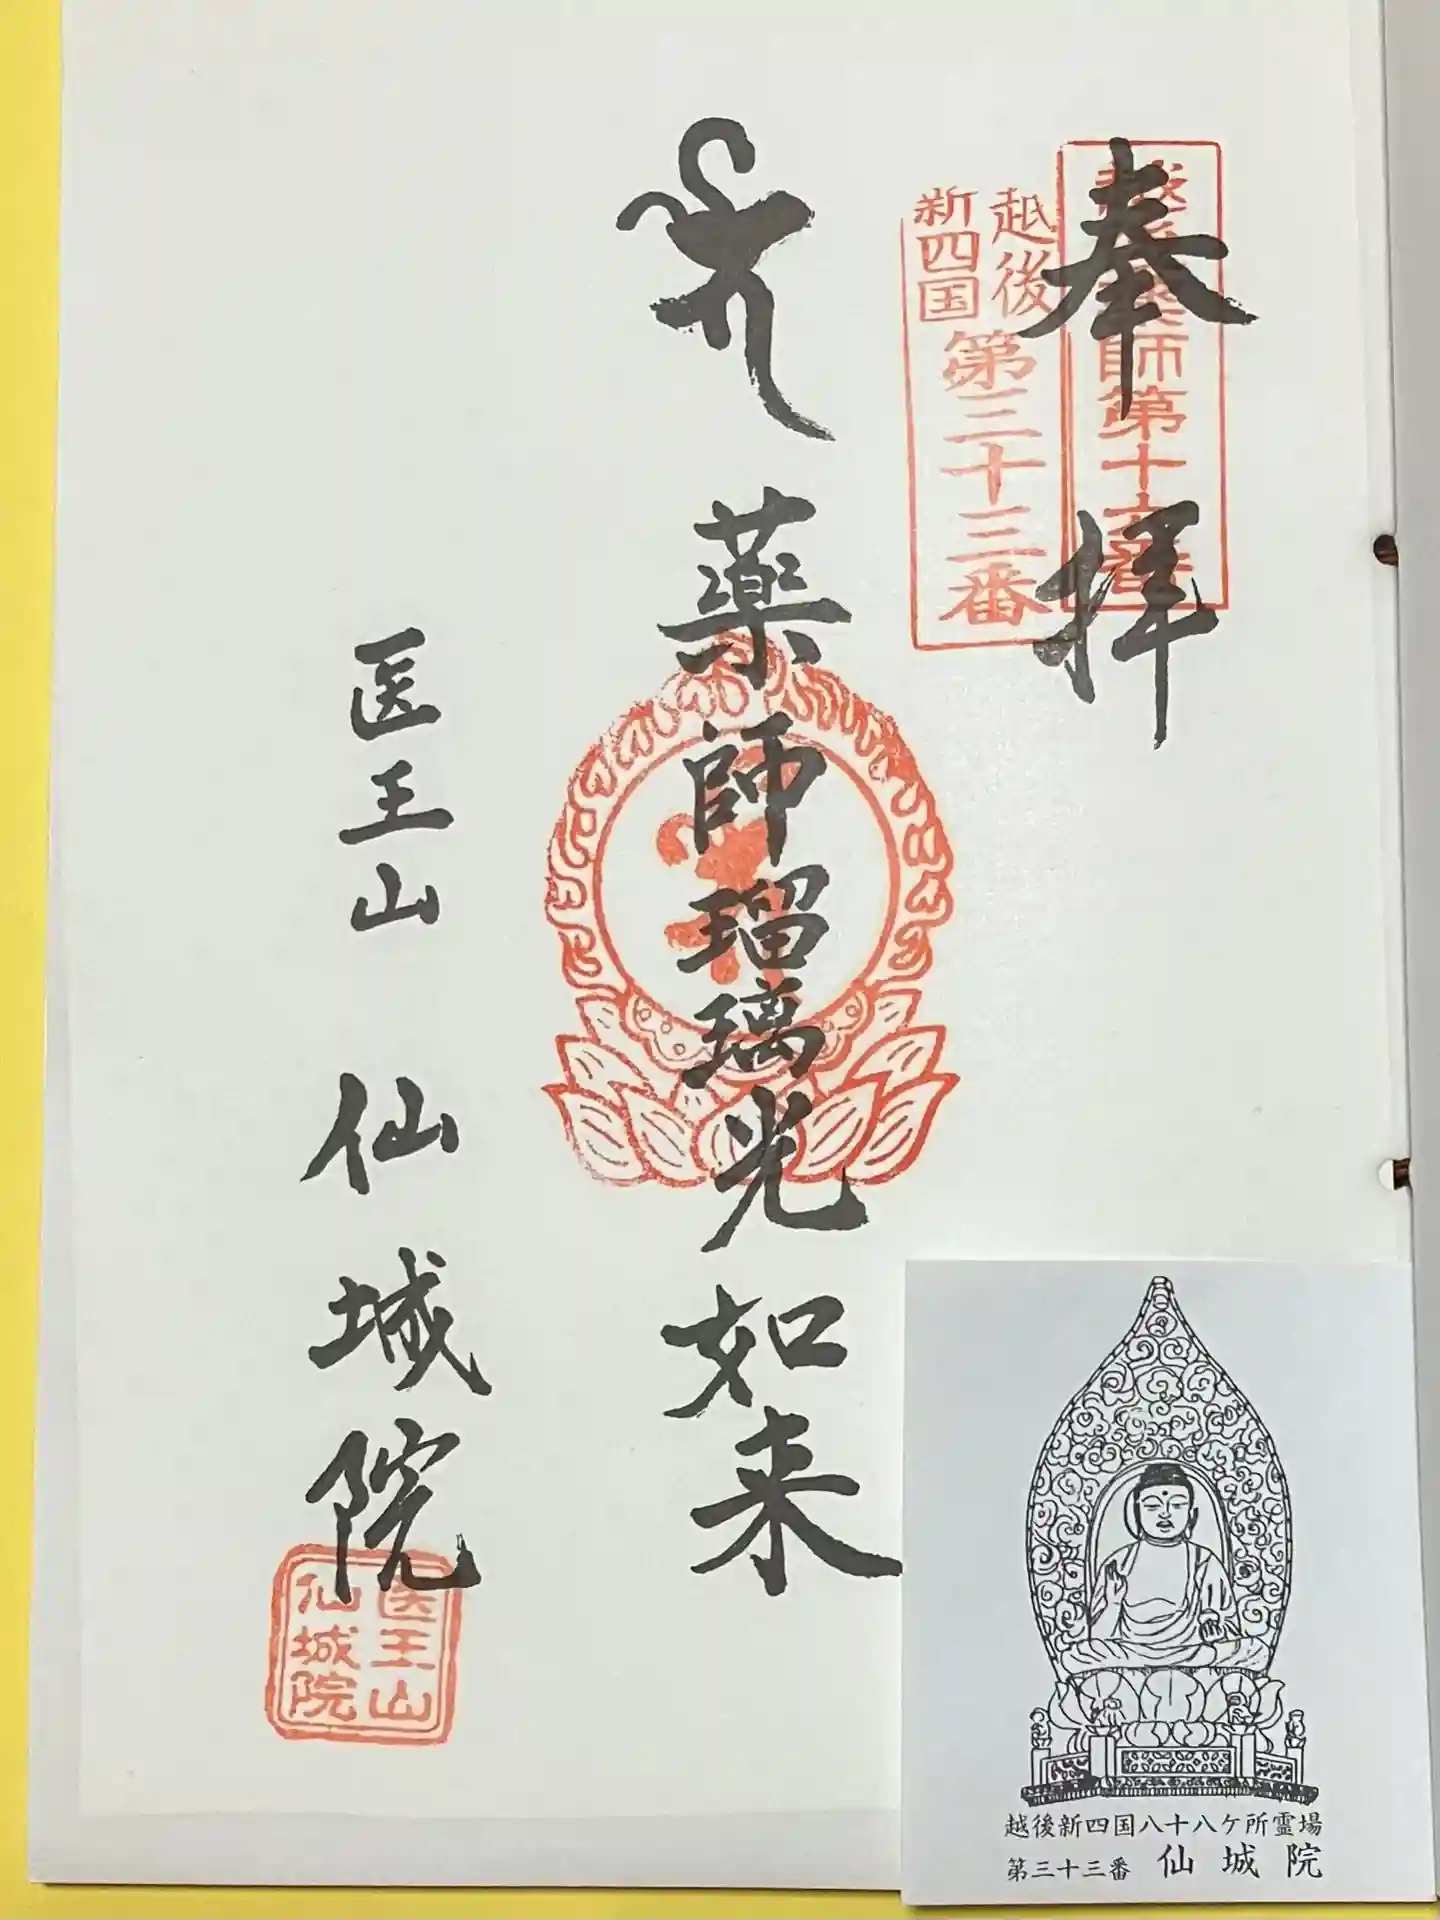 奉拝
越後
新四国
第三十三番
師第十六番
薬師瑠璃光如来
医王山 仙城院
医王山
仙城院
越後新四国八十八ケ所霊場
第三十三番 仙城院